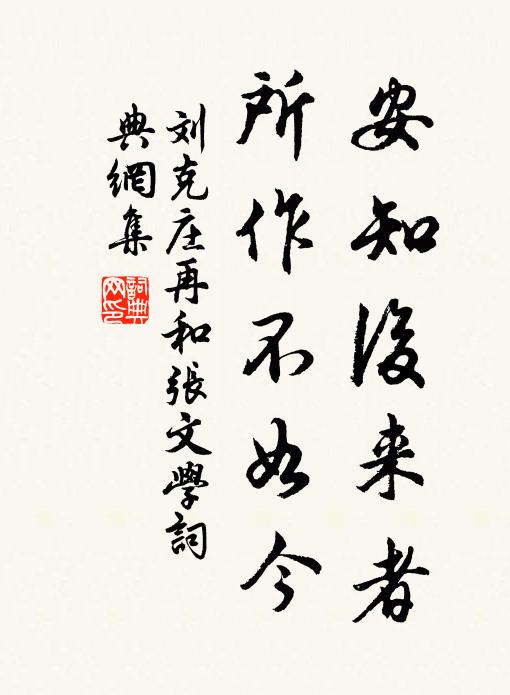 安知後来者
所作不如今
刘克庄再和張文學詞
典網集
詞典
网印